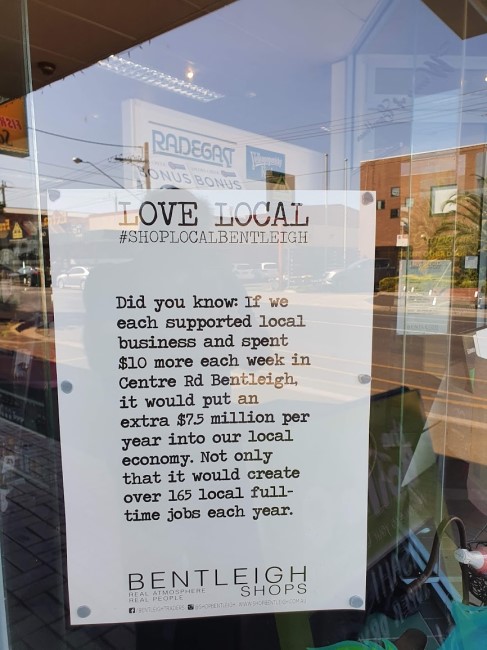 RADEGAST
BONUS BONUS
LOVE LOCAL
#SHOPLOCALBENTLEIGH
Did you know: If we
each supported local
business and spent
$10 more each week in
Centre Rd Bentleigh,
it would put an
extra $7.5 million per
year into our local
economy. Not only
that it would create
over 165 local full-
time jobs each year.
BENTLEIGH
REAL ATMOSPHERE
REAL PEOPLE
SHOPS